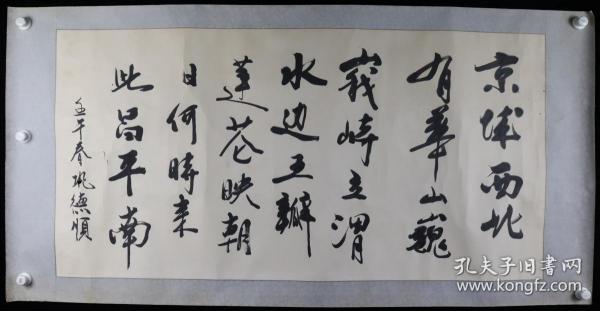 京城西北
有华山巍
峨峙立渭
水边五瓣
莲花映朝
日何時来
此昌平南
壬午春 德順
孔夫子旧书网
www.kongfz.com